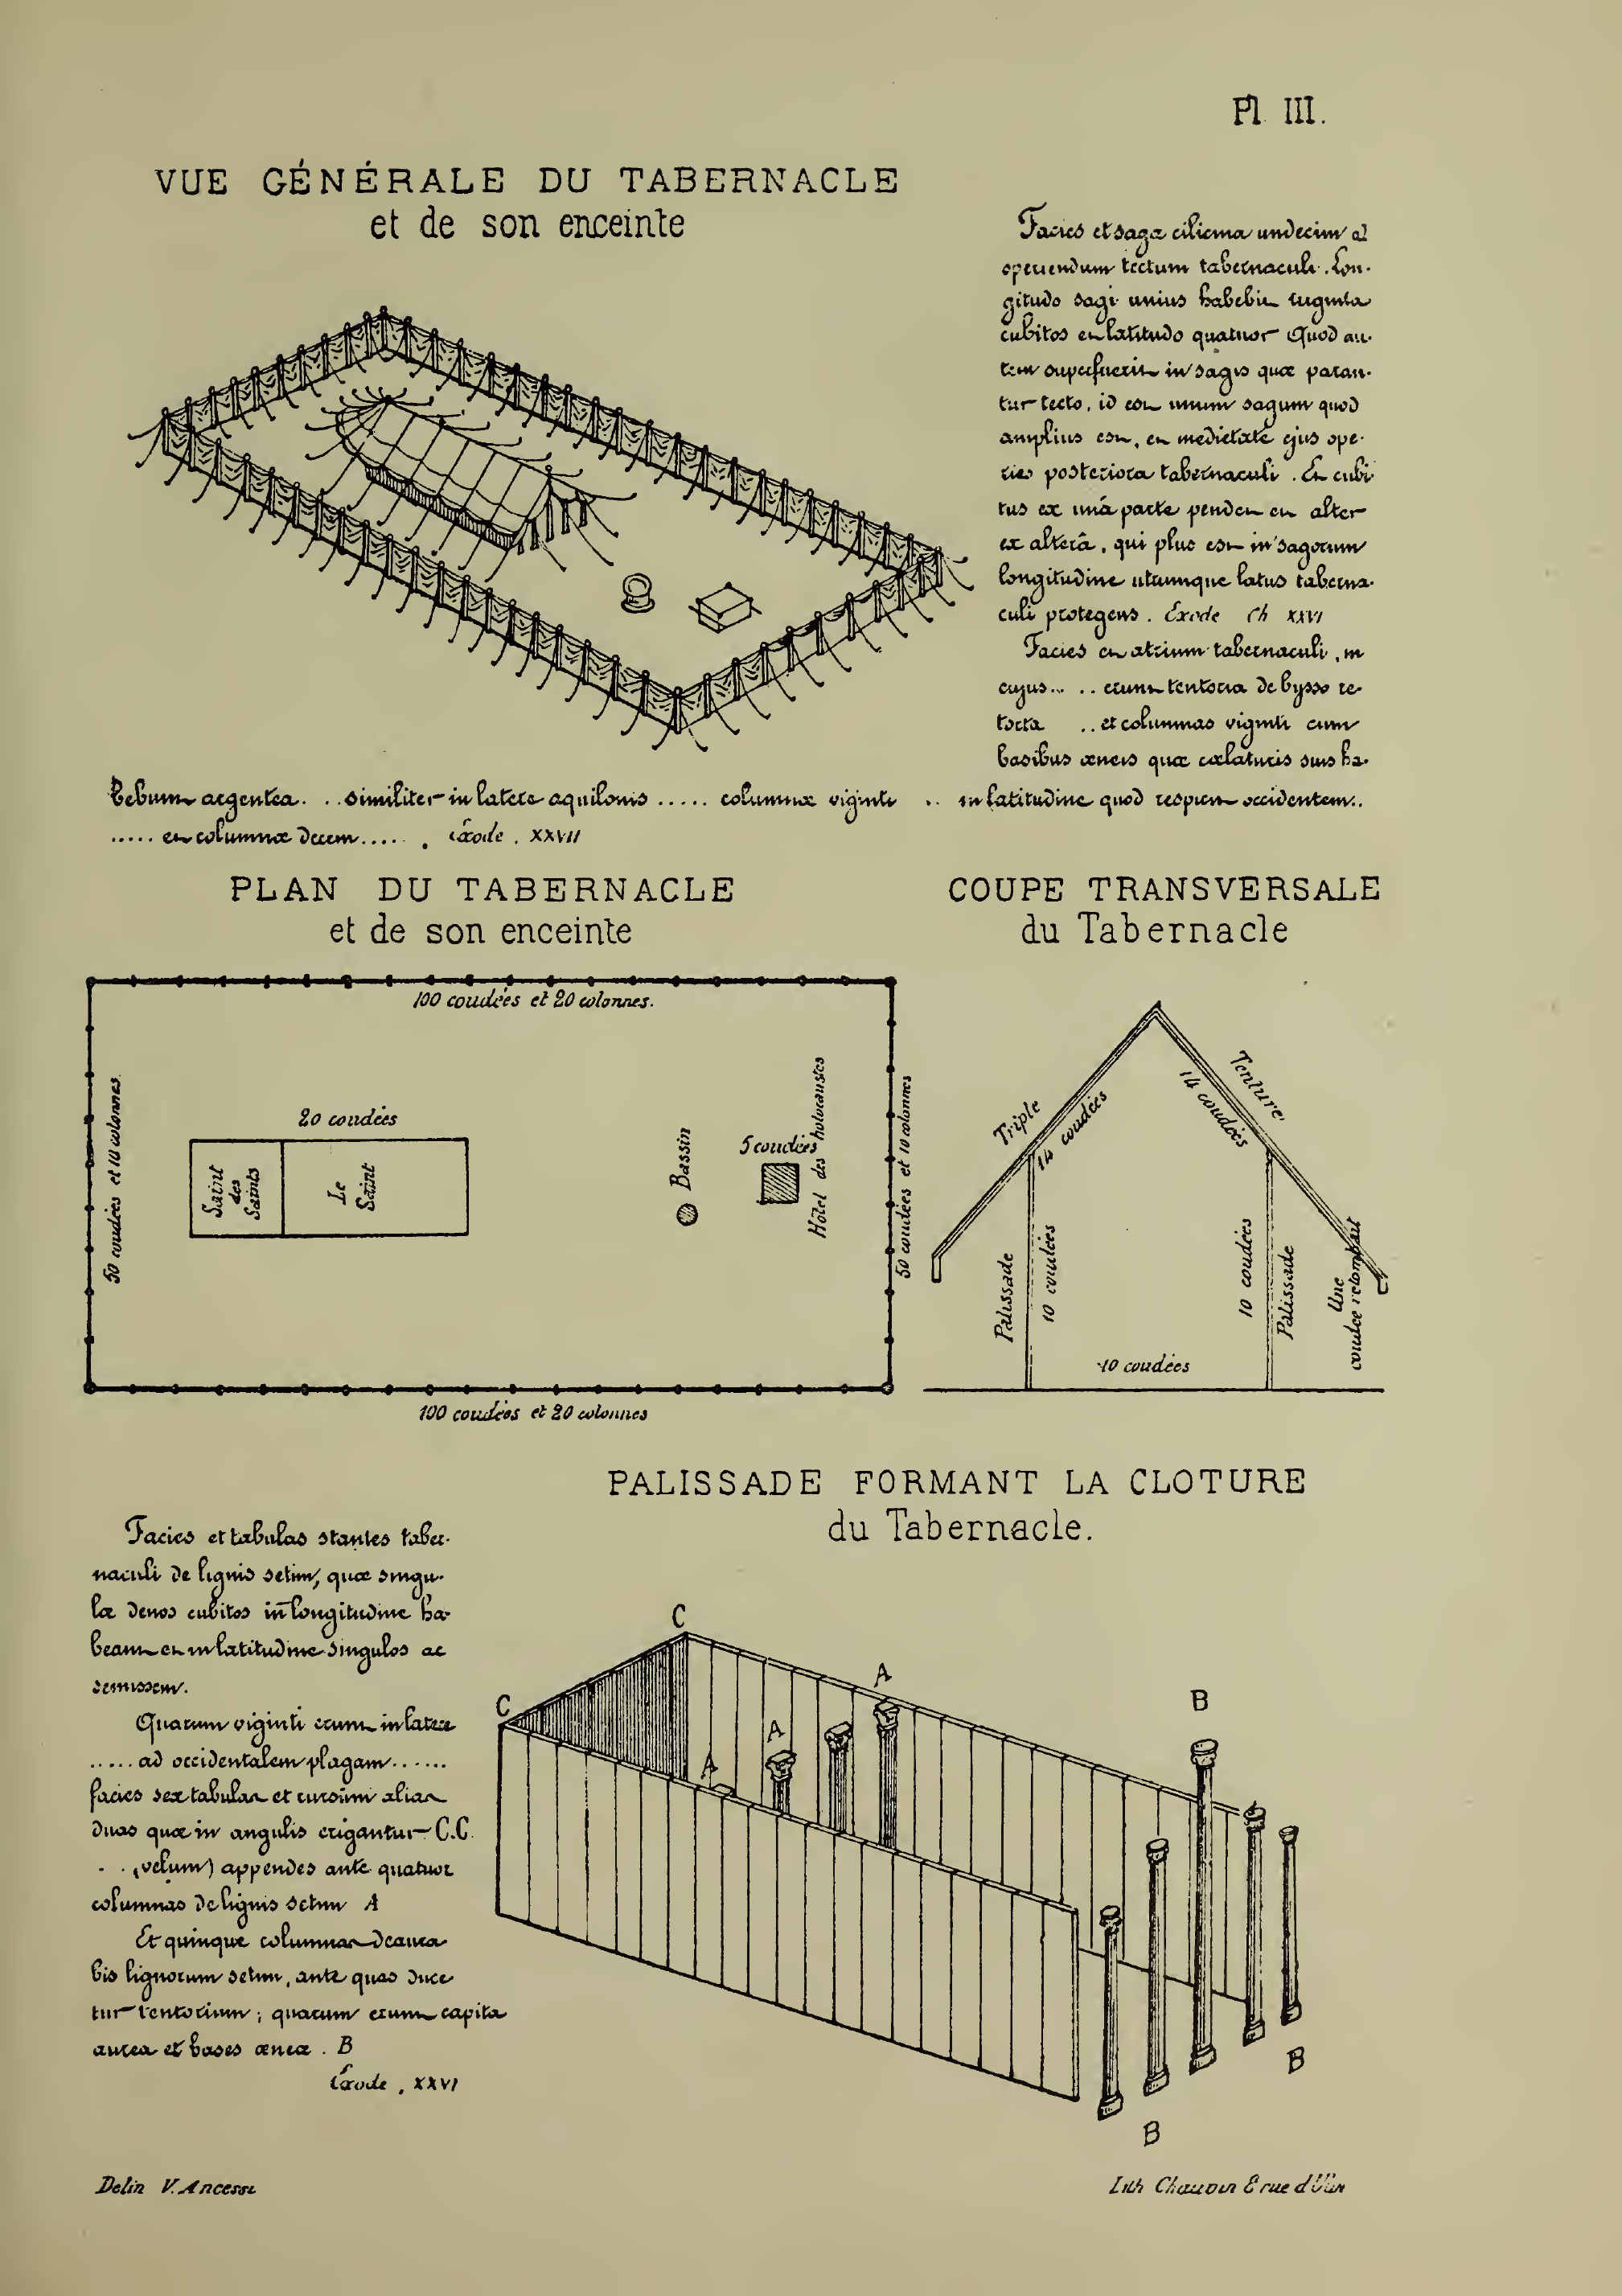 Pl. III.
VUE GÉNÉRALE DU TABERNACLE
et de son enceinte
Facies et saga cilicina undecim ad
operiendum tectum tabernaculi. Lon-
gitudo sagi unius habebit triginta
cubitos et latitudo quatuor Quod au-
tem superfuerit in sagis quæ paran-
tur tecto, id est unum sagum quod
amplius est, et medietate ejus ope-
ries posteriora tabernaculi. Et cubi
tus ex unâ parte pendet et alter
ex alterâ, qui plus est in sagorum
longitudine utrumque latus taberna-
culi protegens. Exode Ch XXVI
Facies et atrium tabernaculi, in
cujus... .. erunt tentoria de bysso re-
torta .. et columnas viginti cum
basibus æneis quæ cælaturis suis ha-
bebunt argentea. .. similiter in latere aquilonis ..... columnæ viginti .. in latitudine quod respicit occidentem..
..... et columnæ decem..... . Éxode . XXVII
PLAN DU TABERNACLE
et de son enceinte
100 coudées et 20 colonnes.
50 coudées et 10 colonnes
20 coudées
Saint
des
Saints
Le
Saint
Bassin
5 coudées
Hôtel des holocaustes
50 coudées et 10 colonnes
100 coudées et 20 colonnes
COUPE TRANSVERSALE
du Tabernacle
Triple
Tenture
14 coudées
14 coudées
14
Palissade
10 coudées
10 coudées
Palissade
Une
coudée retombait
10 coudées
PALISSADE FORMANT LA CLOTURE
du Tabernacle.
Facies et tabulas stantes taber-
naculi de lignis setim, quæ singu-
læ denos cubitos in longitudine ha-
beant et in latitudine singulos ac
semissem.
Quarum viginti erunt in latere
..... ad occidentalem plagam ......
facies sex tabulas et rursum alias
duas quæ in angulis erigantur C.C.
. . (velum) appendes ante quatuor
columnas de lignis setim A
Et quinque columnas deaura
bis lignorum setim, ante quas duce
tur tentorium; quarum erunt capita
aurea et bases æneæ. B
Éxode, XXVI
C
C
A
A
A
B
B
B
Delin V. Ancessi
Lith Chauvin 8 rue d'Ulm